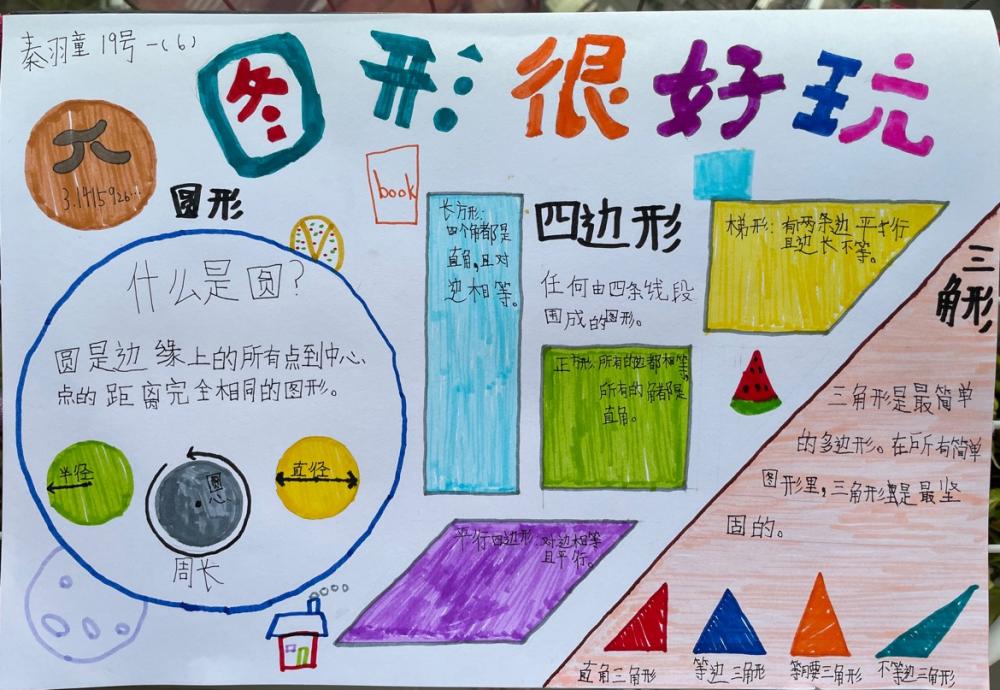 秦羽童 19号 一(6)
图形很好玩
π
3.1415926...
圆形
什么是圆?
圆是边缘上的所有点到中心
点的距离完全相同的图形。
半径
圆心
直径
周长
book
长方形:
四个角都是
直角,且对
边相等。
四边形
任何由四条线段
围成的图形。
梯形:有两条边平行
且边长不等。
正方形:所有的边都相等,
所有的角都是
直角。
平行四边形:对边相等
且平行。
三
角形
三角形是最简单
的多边形。在所有简单
图形里,三角形是最坚
固的。
直角三角形
等边三角形
等腰三角形
不等边三角形